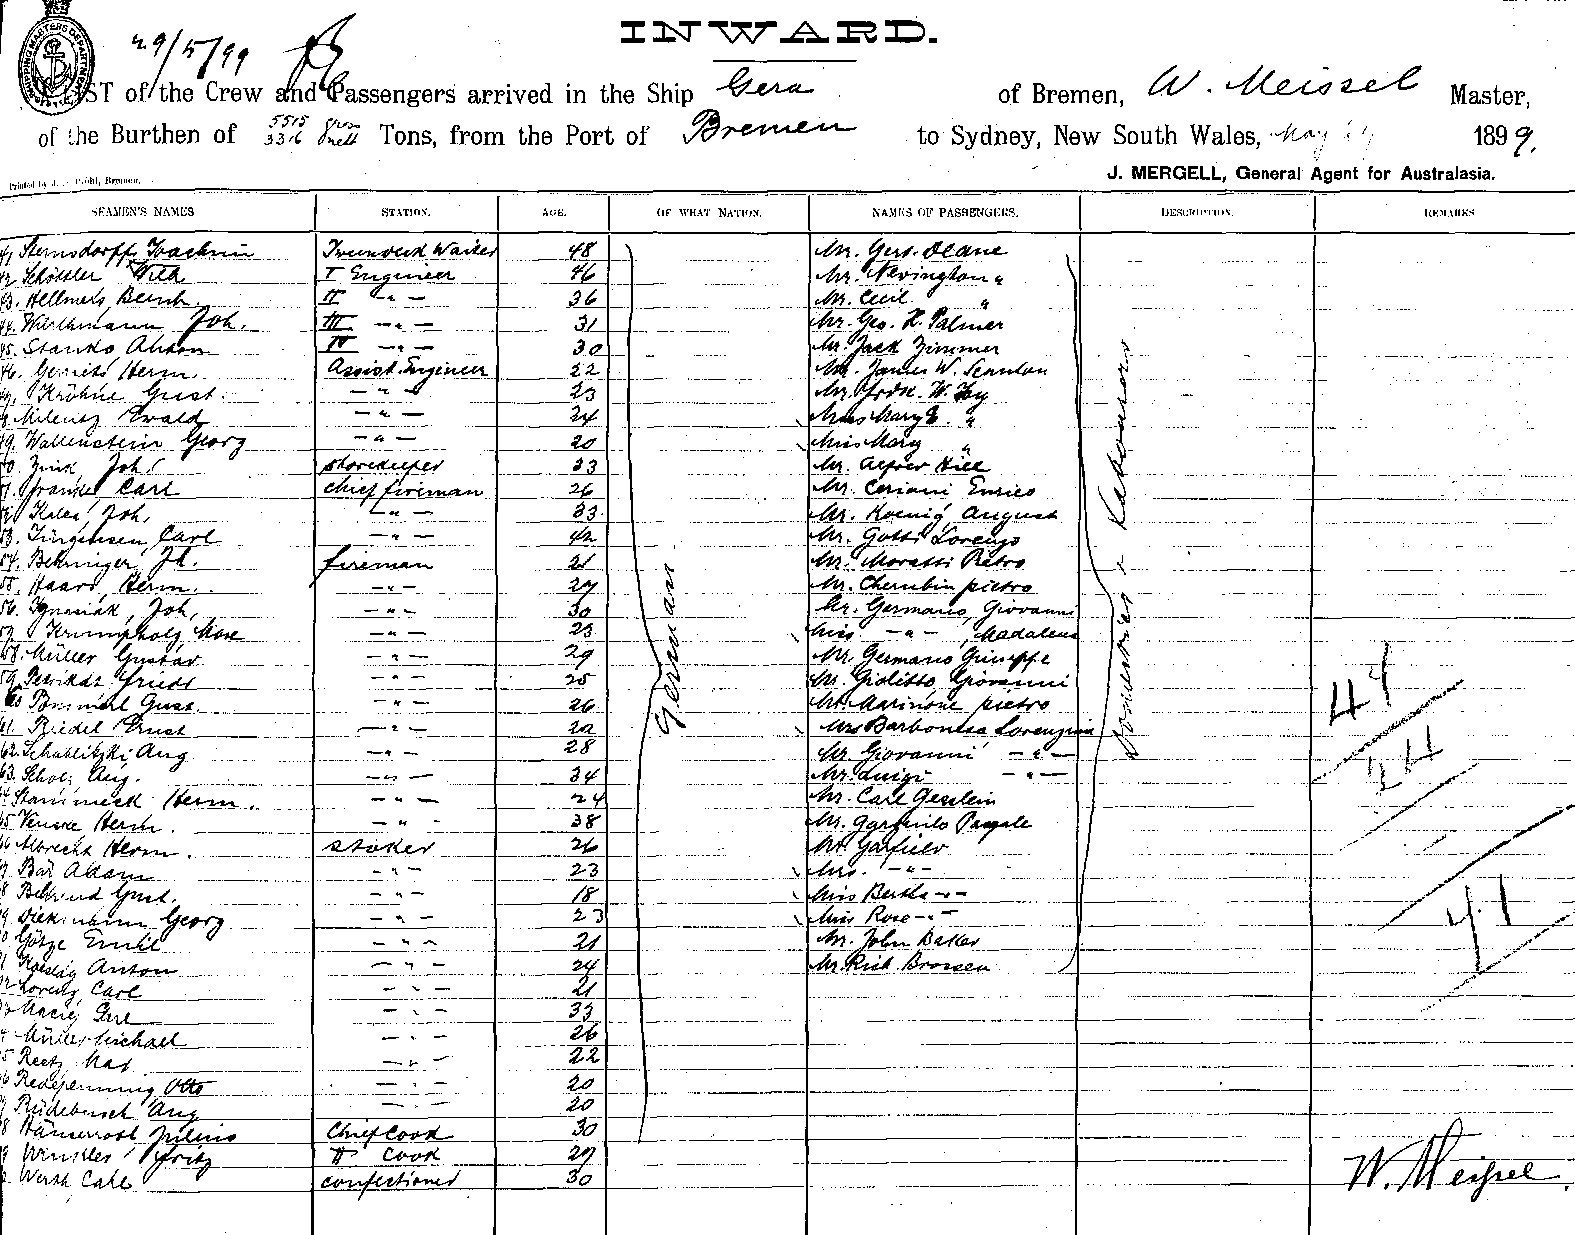 INWARD.
29/5/99
LIST of the Crew and Passengers arrived in the Ship Gera of Bremen, W. Meissel Master,
of the Burthen of 5515 gros 3316 nett Tons, from the Port of Bremen to Sydney, New South Wales, May 1899.
J. MERGELL, General Agent for Australasia.
Printed by Bremen.
SEAMEN'S NAMES STATION. AGE. OF WHAT NATION. NAMES OF PASSENGERS. DESCRIPTION. REMARKS
41 Sternsdorff, Joachim 48 Mr. Deane
42 Schössler Wilh I Engineer 46 Mr. Nevington "
43. Hellmers, Bernh. II -"- 36 Mr. Cecil "
44. Joh. III -"- 31 Mr. Geo. H. Palmer
45. Stanko, Anton IV -"- 30 Mr. Jack Zimmer
46. Gerriets Herm. Assist. Engineer 22 Mr. James W. Scanlan
47. Kröhne Gust. -"- 23 Mr. W.
48 Milenz Ewald -"- 24 Mary E. "
49. Wallenstein Georg -"- 20 Miss Mary "
50. Zink Joh. storekeeper 33 Mr. Alfred Hill
51. Franke, Carl chief fireman 26 Mr. Ceriani Enrico
52. Joh. -"- 33. Mr. Koenig August
53. Jürgensen, Carl -"- 42 Mr. Gotti Lorenzo
54. Behringer, fireman 21 Mr. Moratti Pietro
55. Haars, Herm. -"- 27 Mr. Cherubin pietro
56. Ignasiak, Joh, -"- 30 Mr. Germano, Giovanni
57 Krumpholz, Max -"- 23 Miss -"-, Madalena
58. Müller Gustav -"- 29 Mr. Germano Giuseppe
59. Friedr -"- 25 Mr. Giolitto Giovanni
60 Pommerl Gust. -"- 26 Mr. Marinone pietro
61 Riedel Ernst -"- 22 Mrs Lorenzina
62. Schablitzki Aug -"- 28 Mr. Giovanni -"-
63. Scholz Aug. -"- 34 Mr. Luigi -"-
64 Stammeck Herm. -"- 24 Mr. Carl Gesslein
65 Venske Herm. -"- 38 Mr.
66 Albrecht Herm. stoker 26 Mr. Garfield
67 Bär Adam -"- 23 Mrs. -"-
68 Behrend Gust. -"- 18 Miss Bertha -"-
69. Georg -"- 23 Miss Rose -"-
70 Götze Emil -"- 21 Mr. John Baker
71 Anton -"- 24 Mr. Rich Brossen
72 Lorenz, Carl -"- 21
73 -"- 33
74 Müller Michael -"- 26
75 Reetz Max -"- 22
76 Redepenning Otto -"- 20
77 Rüdebusch Aug -"- 20
78 Julius Chief Cook 30
79 Winkler Fritz II Cook 27
80 Werth Carl confectioner 30
German
44
24
41
W. Meissel.